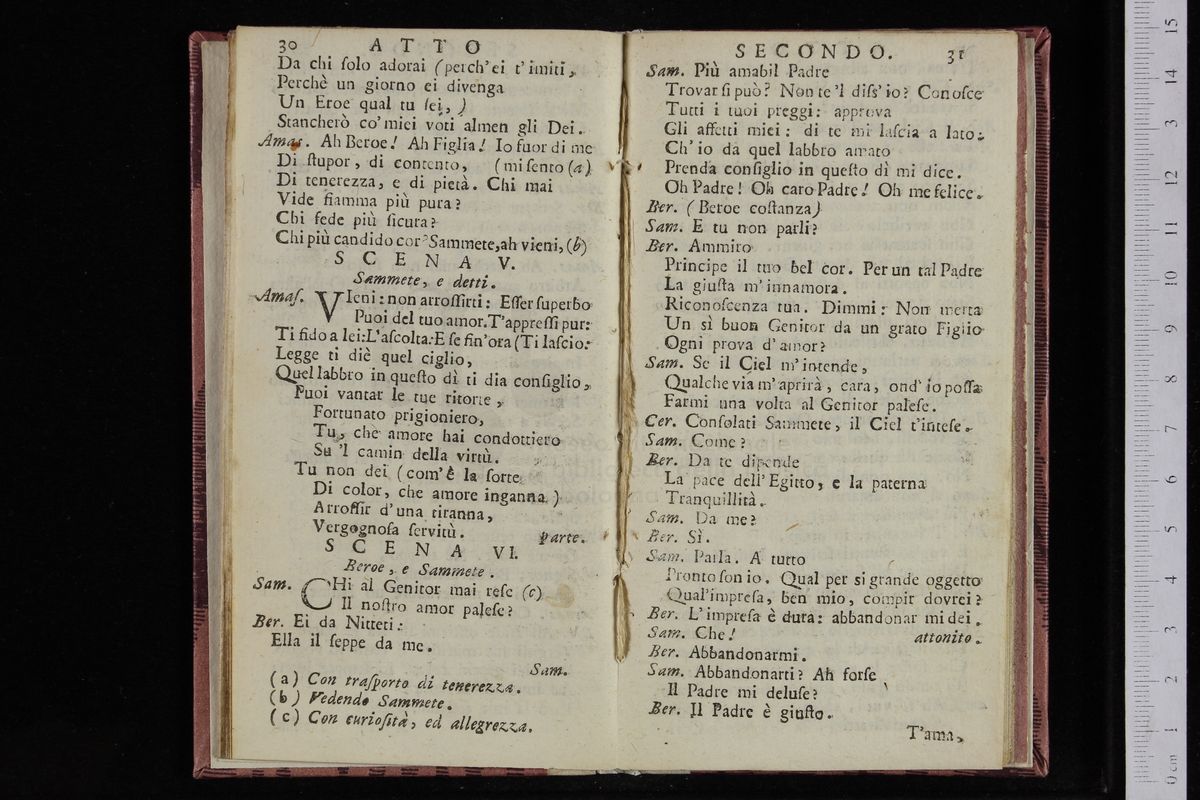 30 ATTO
Da chi ſolo adorai (perch'ei t'imiti,
Perchè un giorno ei divenga
Un Eroe qual tu ſei,)
Stancherò co'miei voti almen gli Dei.
Amas. Ah Beroe! Ah Figlia! Io fuor di me
Di ſtupor, di contento, (mi ſento (a)
Di tenerezza, e di pietà. Chi mai
Vide fiamma più pura?
Chi fede più ſicura?
Chi più candido cor? Sammete, ah vieni, (b)
SCENA V.
Sammete, e detti.
Amaſ. VIeni: non arroſſirti: Eſſer ſuperbo
Puoi del tuo amor. T'appreſſi pur:
Ti fido a lei: L'aſcolta: E ſe fin'ora (Ti laſcio:
Legge ti diè quel ciglio,
Quel labbro in queſto dì ti dia conſiglio,
Puoi vantar le tue ritorte,
Fortunato prigioniero,
Tu, che amore hai condottiero
Su 'l camin della virtù.
Tu non dei (com'è la ſorte
Di color, che amore inganna)
Arroſſir d'una tiranna,
Vergognoſa ſervitù. parte.
SCENA VI.
Beroe, e Sammete.
Sam. CHi al Genitor mai reſe (c)
Il noſtro amor paleſe?
Ber. Ei da Nitteti:
Ella il ſeppe da me.
Sam.
(a) Con traſporto di tenerezza.
(b) Vedendo Sammete.
(c) Con curioſità, ed allegrezza.
SECONDO. 31
Sam. Più amabil Padre
Trovar ſi può? Non te 'l diſs' io? Conoſce
Tutti i tuoi preggi: approva
Gli affetti miei: di te mi laſcia a lato:
Ch' io da quel labbro amato
Prenda conſiglio in queſto dì mi dice.
Oh Padre! Oh caro Padre! Oh me felice.
Ber. (Beroe coſtanza)
Sam. E tu non parli?
Ber. Ammiro
Principe il tuo bel cor. Per un tal Padre
La giuſta m'innamora.
Riconoſcenza tua. Dimmi: Non merta
Un sì buon Genitor da un grato Figlio
Ogni prova d'amor?
Sam. Se il Ciel m'intende,
Qualche via m'aprirà, cara, ond' io poſſa
Farmi una volta al Genitor paleſe.
Cer. Conſolati Sammete, il Ciel t'inteſe.
Sam. Come?
Ber. Da te dipende
La pace dell' Egitto, e la paterna
Tranquillità.
Sam. Da me?
Ber. Sì.
Sam. Parla. A tutto
Pronto ſon io. Qual per si grande oggetto
Qual'impreſa, ben mio, compir dovrei?
Ber. L' impreſa è dura: abbandonar mi dei.
Sam. Che! attonito.
Ber. Abbandonarmi.
Sam. Abbandonarti? Ah forſe
Il Padre mi deluſe?
Ber. Il Padre è giuſto.
T'ama,